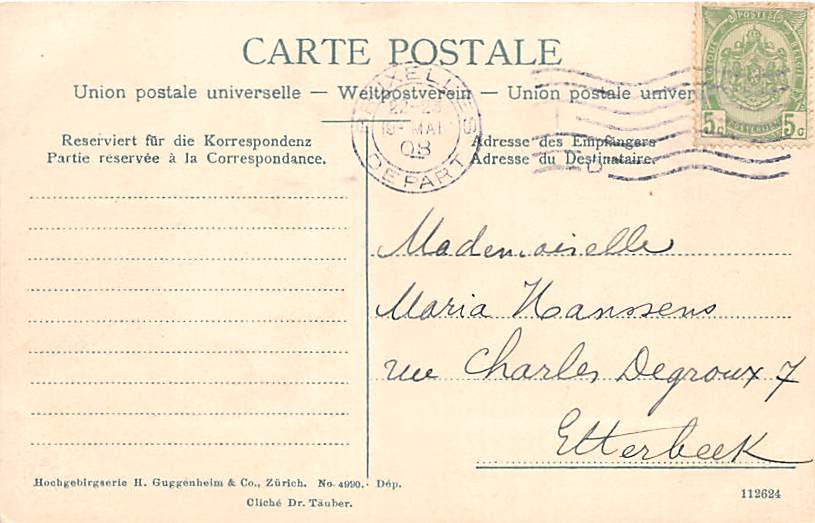 CARTE POSTALE
Union postale universelle — Weltpostverein — Union postale univer
BRUXELLES
18- MAI
08
DEPART
POSTES
5c 5c
Reserviert für die Korrespondenz
Partie réservée à la Correspondance.
Adresse des Empfängers
Adresse du Destinataire.
Mademoiselle
Maria Hanssens
rue Charles Degroux 7
Etterbeek
Hochgebirgserie H. Guggenheim & Co., Zürich. No. 4990. Dép.
Cliché Dr. Täuber.
112624